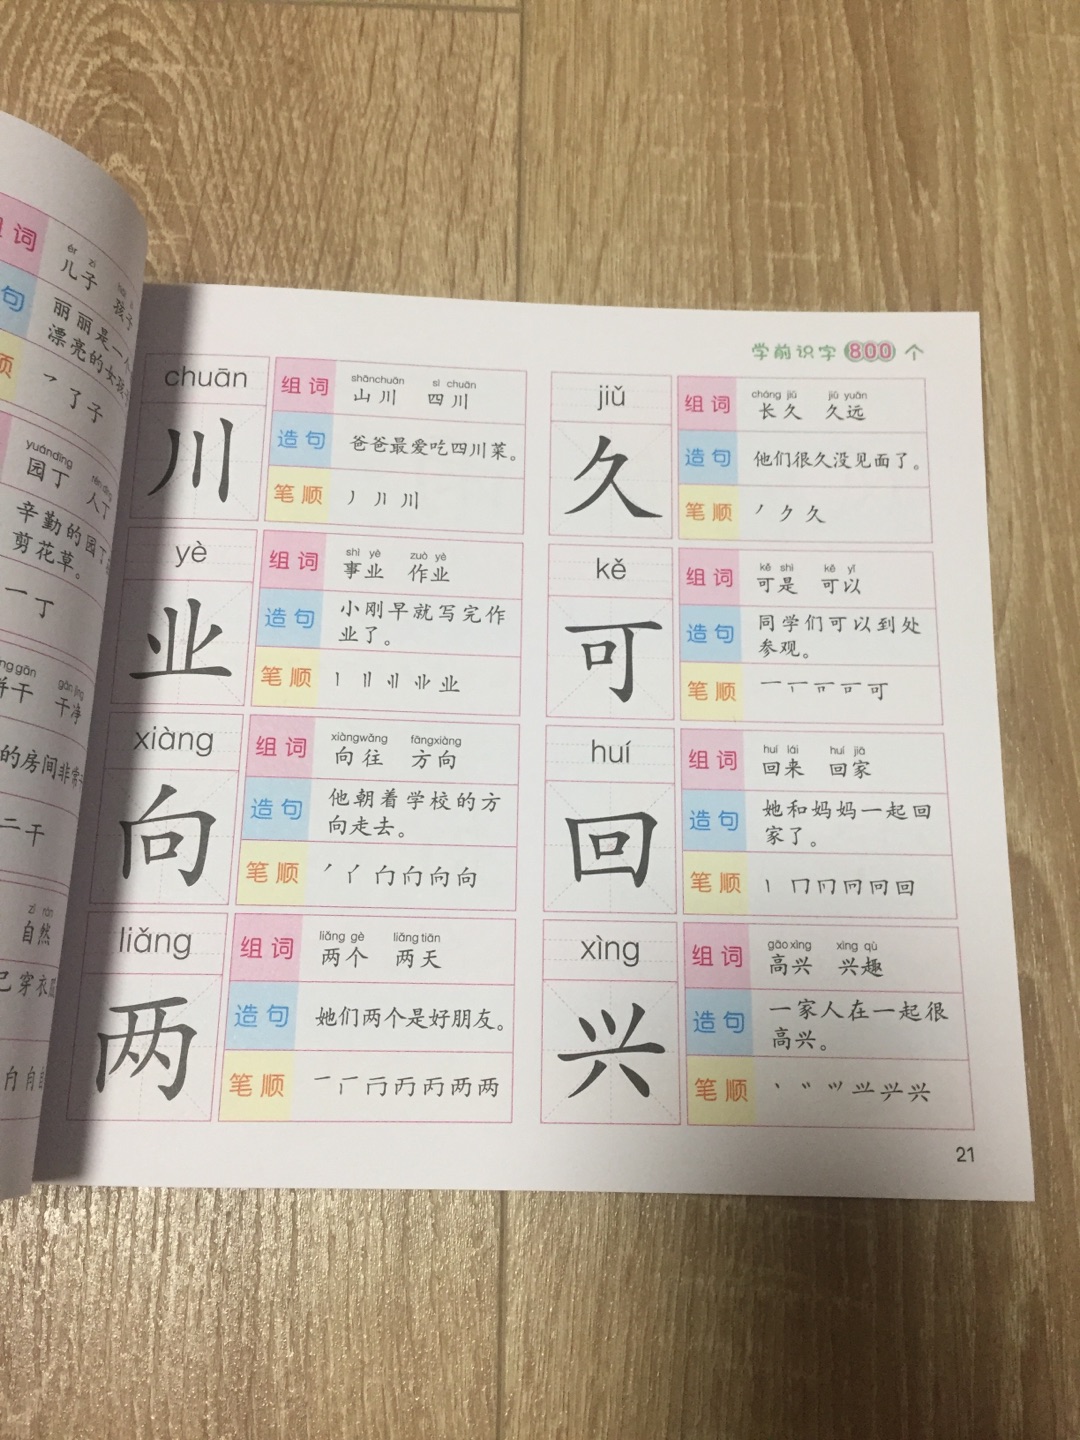 组词
ér zi
儿子 孩子
句
丽丽是一
漂亮的女孩
了子
yuándīng
园丁 人丁
辛勤的园丁
剪花草。
一丁
饼干 干净
的房间非常
二干
zì rán
自然
己穿衣服
学前识字800个
chuān
川
组词
shānchuān sì chuān
山川 四川
造句
爸爸最爱吃四川菜。
笔顺
丿 川
yè
业
组词
shì yè zuò yè
事业 作业
造句
小刚早就写完作
业了。
笔顺
业
xiàng
向
组词
xiàngwǎng fāngxiàng
向往 方向
造句
他朝着学校的方
向走去。
笔顺
向
liǎng
两
组词
liǎng gè liǎng tiān
两个 两天
造句
她们两个是好朋友。
笔顺
两
jiǔ
久
组词
cháng jiǔ jiǔ yuǎn
长久 久远
造句
他们很久没见面了。
笔顺
丿 ク 久
kě
可
组词
kě shì kě yǐ
可是 可以
造句
同学们可以到处
参观。
笔顺
可
huí
回
组词
huí lái huí jiā
回来 回家
造句
她和妈妈一起回
家了。
笔顺
丨 冂 回
xìng
兴
组词
gāo xìng xìng qù
高兴 兴趣
造句
一家人在一起很
高兴。
笔顺
兴
21